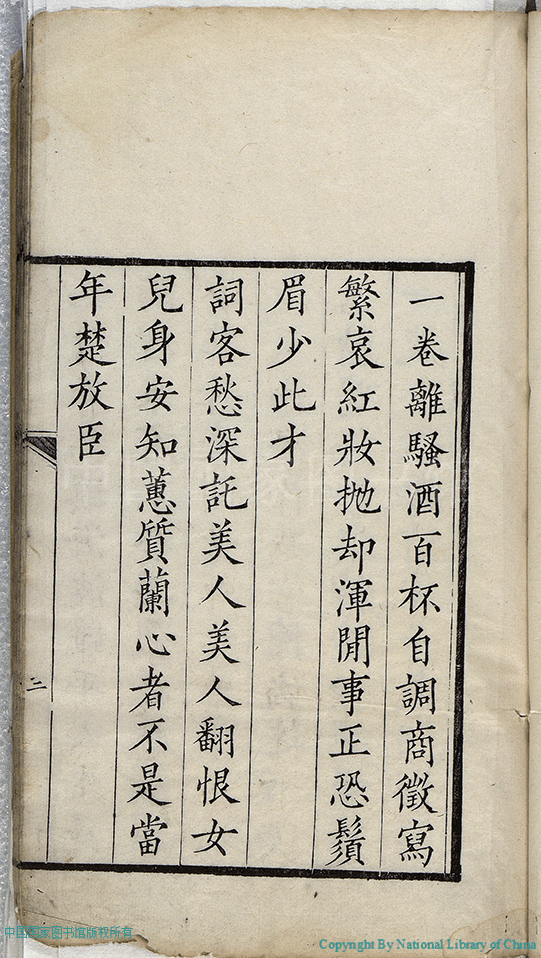 一卷離騷酒百杯自調商徵寫
繁哀紅妝拋却渾閒事正恐鬚
眉少此才
詞客愁深託美人美人翻恨女
兒身安知蕙質蘭心者不是當
年楚放臣
二
中国国家图书馆版权所有
Copyright By National Library of China